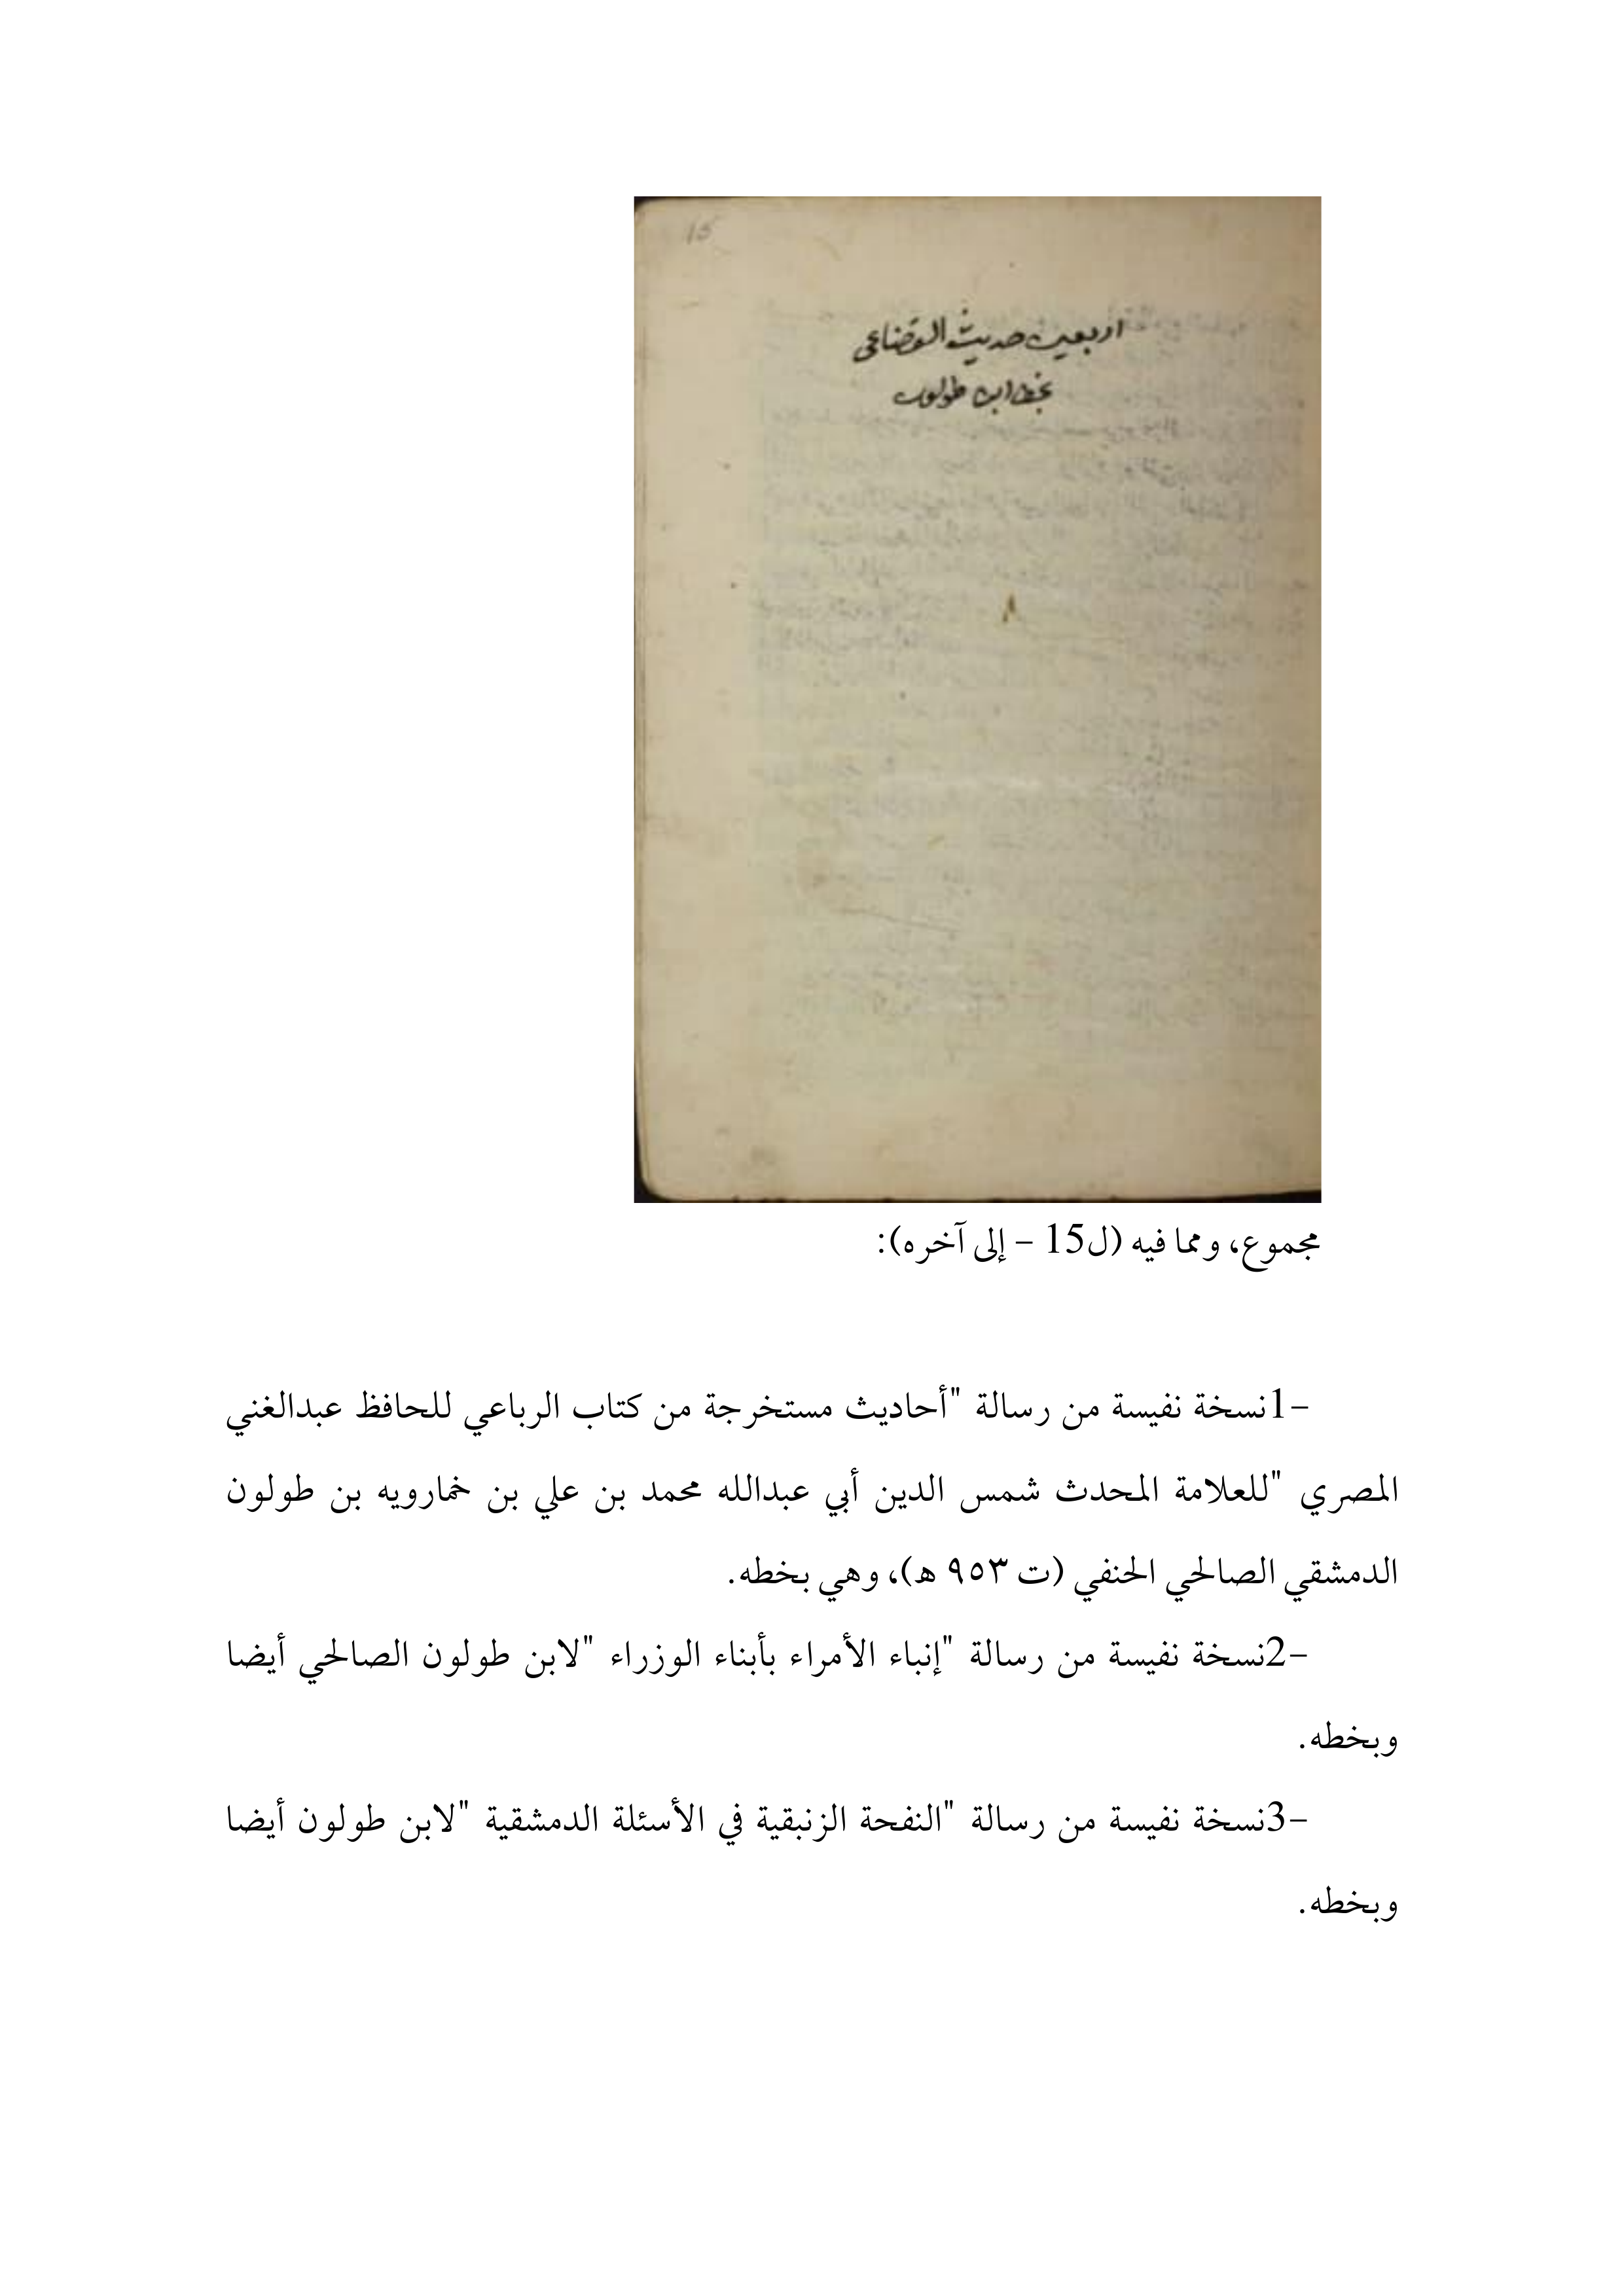 15
اربعين حديث القضاعي
بخط ابن طولون
٨
مجموع، ومما فيه (ل15 – إلى آخره):
-1نسخة نفيسة من رسالة "أحاديث مستخرجة من كتاب الرباعي للحافظ عبدالغني
المصري "للعلامة المحدث شمس الدين أبي عبدالله محمد بن علي بن خمارويه بن طولون
الدمشقي الصالحي الحنفي (ت ٩٥٣ ه)، وهي بخطه.
-2نسخة نفيسة من رسالة "إنباء الأمراء بأبناء الوزراء "لابن طولون الصالحي أيضا
وبخطه.
-3نسخة نفيسة من رسالة "النفحة الزنبقية في الأسئلة الدمشقية "لابن طولون أيضا
وبخطه.